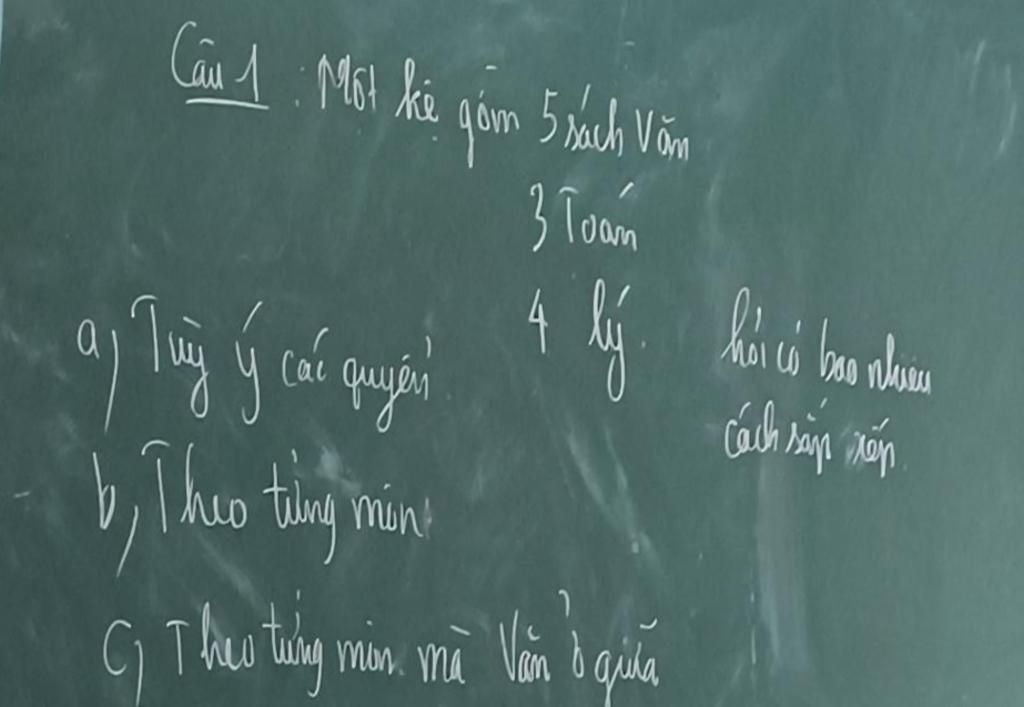 Câu 1 : Một kệ gồm 5 sách Văn
3 Toán
4 lý.
hỏi có bao nhiêu
cách sắp xếp.
a, Tùy ý các quyển
b, Theo từng môn
c, Theo từng môn. mà Văn ở giữa